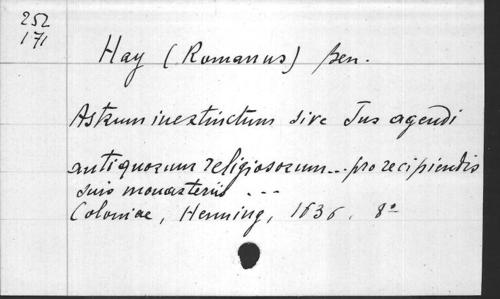 252
171
Hay (Romanus) ben.
Astrum inextinctum sive Jus agendi
antiquorum religiosorum... pro recipiendis
suis monasteriis ...
Coloniae, Henning, 1636. 8°